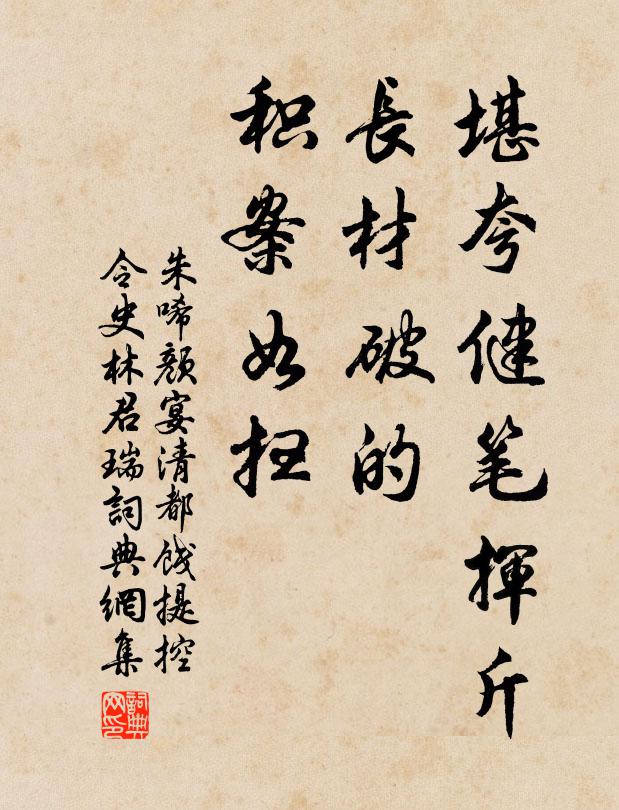 堪夸健笔揮斤
長材破的
积案如扫
朱晞颜宴清都饯提控
令史林君瑞詞典網集
詞典网印